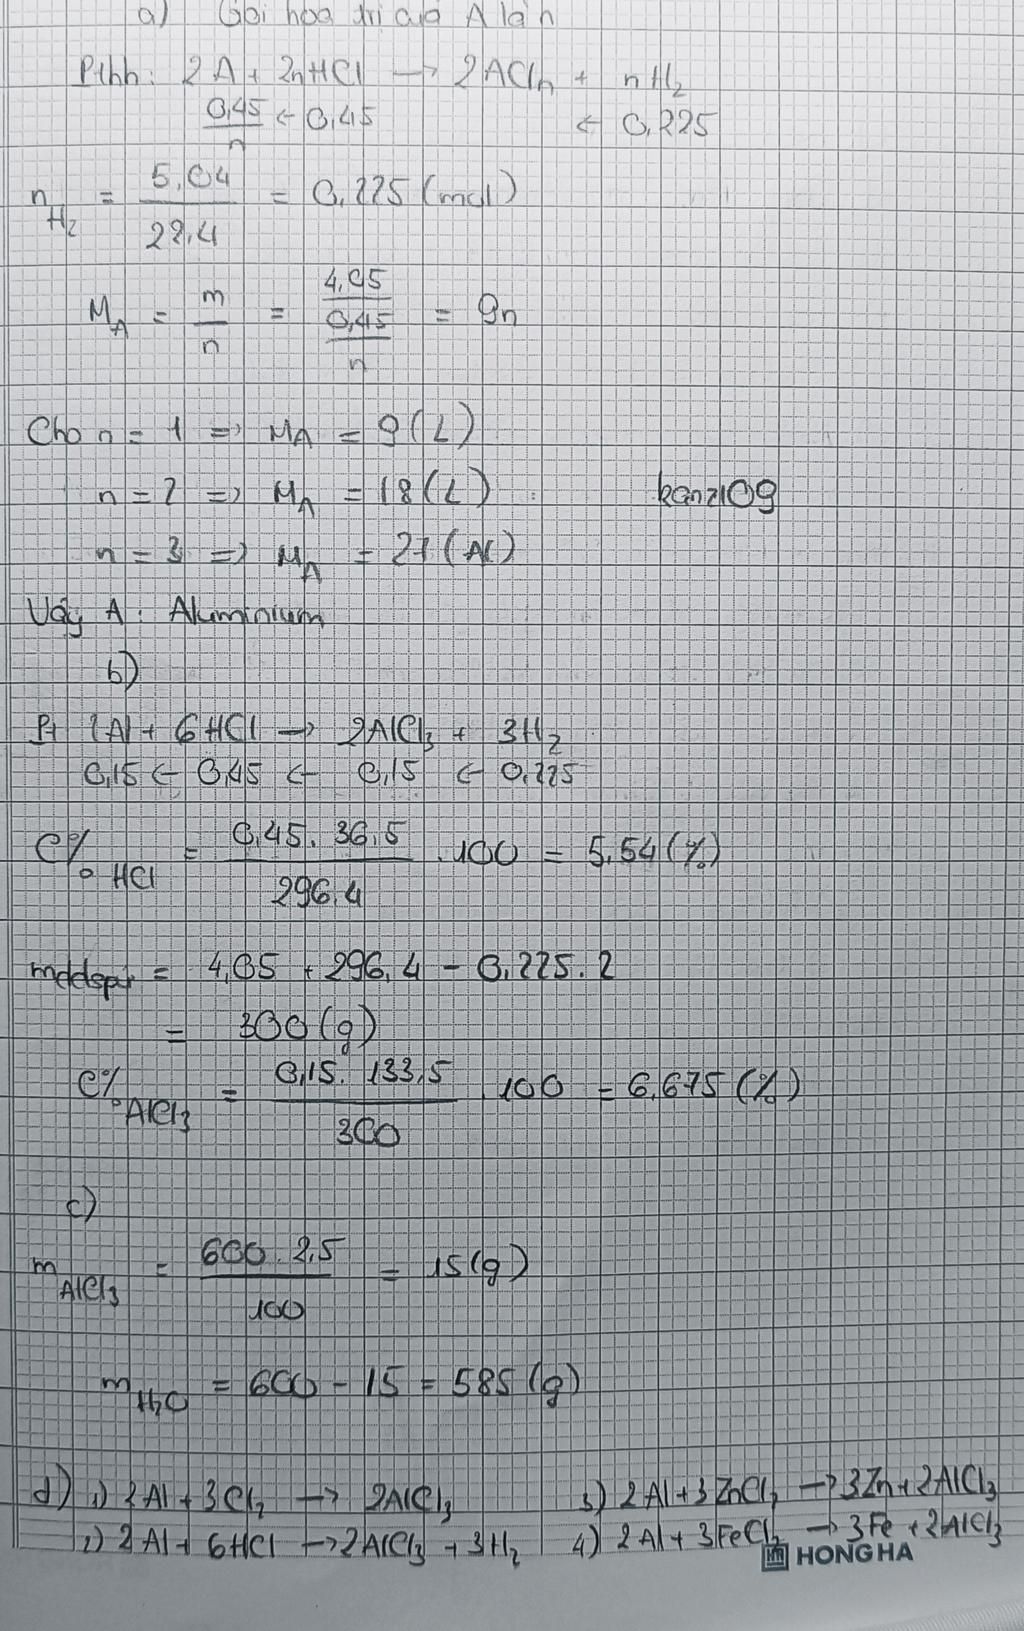 a) Gọi hóa trị của A là n
Pthh: 2A + 2nHCl → 2ACln + nH2
0,45/n ← 0,45 ← 0,225
nH2 = 5,04/22,4 = 0,225 (mol)
MA = m/n = 4,05/(0,45/n) = 9n
Cho n = 1 => MA = 9 (L)
n = 2 => MA = 18 (L)
kanz109
n = 3 => MA = 27 (Al)
Vậy A: Aluminium
b)
Pt 2Al + 6HCl → 2AlCl3 + 3H2
0,15 ← 0,45 ← 0,15 ← 0,225
C%HCl = 0,45.36,5/296,4 .100 = 5,54 (%)
mddspư = 4,05 + 296,4 - 0,225.2
= 300 (g)
C%AlCl3 = 0,15.133,5/300 .100 = 6,675 (%)
c)
mAlCl3 = 600.2,5/100 = 15 (g)
mH2O = 600 - 15 = 585 (g)
d) 1) 2Al + 3Cl2 → 2AlCl3 3) 2Al + 3ZnCl2 → 3Zn + 2AlCl3
2) 2Al + 6HCl → 2AlCl3 + 3H2 4) 2Al + 3FeCl2 → 3Fe + 2AlCl3
HONG HA